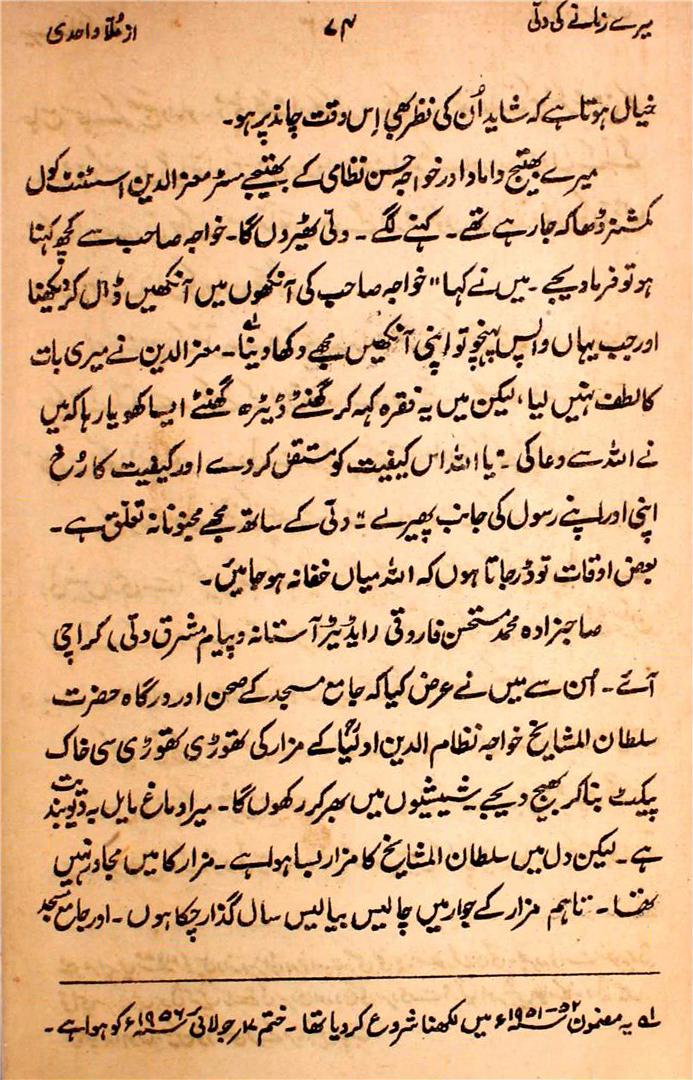 میرے زمانے کی دلّی ۷۴ از مُلّا واحدی
خیال ہوتا ہے کہ شاید اُن کی نظر بھی اِس وقت چاند پر ہو۔
میرے بھتیج داماد اور خواجہ حسن نظامی کے بھتیجے مسٹر معز الدین اسسٹنٹ کول
کمشنر ڈھاکہ جا رہے تھے۔ کہنے لگے۔ دلّی ٹھیروں گا۔ خواجہ صاحب سے کچھ کہنا
ہو تو فرما دیجے۔ میں نے کہا "خواجہ صاحب کی آنکھوں میں آنکھیں ڈال کر دیکھنا
اور جب یہاں واپس پہنچو تو اپنی آنکھیں مجھے دکھا دینا۔ معز الدین نے میری بات
کا لطف نہیں لیا، لیکن میں یہ فقرہ کہہ کر گھنٹے ڈیڑھ گھنٹے ایسا کھویا رہا کہ میں
نے اللہ سے دعا کی۔ "یا اللہ اس کیفیت کو مستقل کر دے اور کیفیت کا رُخ
اپنی اور اپنے رسول کی جانب پھیر لے" دلّی کے ساتھ مجھے مجنونانہ تعلق ہے۔
بعض اوقات تو ڈر جاتا ہوں کہ اللہ میاں خفا نہ ہو جائیں۔
صاحبزادہ محمد مستحسن فاروقی (ایڈیٹر آستانہ و پیام مشرق دلّی) کراچی
آئے۔ اُن سے میں نے عرض کیا کہ جامع مسجد کے صحن اور درگاہ حضرت
سلطان المشایخ خواجہ نظام الدین اولیاؒ کے مزار کی تھوڑی تھوڑی سی خاک
پیکٹ بنا کر بھیج دیجیے۔ شیشیوں میں بھر کر رکھوں گا۔ میرا دماغ مایل بہ دیوبندیت
ہے۔ لیکن دل میں سلطان المشایخ کا مزار بسا ہوا ہے۔ مزار کا میں مجاور نہیں
تھا۔ تاہم مزار کے جوار میں چالیس بیالیس سال گذار چکا ہوں۔ اور جامع مسجد
لہ یہ مضمون ۵۲-۱۹۵۱ء میں لکھنا شروع کر دیا تھا۔ ختم جولائی ۱۹۵۶ء کو ہوا ہے۔